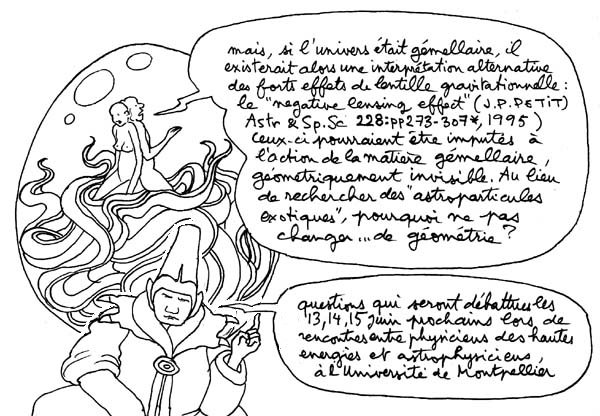 mais, si l'univers était gémellaire, il
existerait alors une interprétation alternative
des forts effets de lentille gravitationnelle :
le "negative lensing effect" (J.P.PETIT)
Astr & Sp.Sc 228:pp273-307*, 1995)
Ceux-ci pourraient être imputés à
l'action de la matière gémellaire,
géométriquement invisible. Au lieu
de rechercher des "astroparticules
exotiques", pourquoi ne pas
changer... de géométrie ?
questions qui seront débattues les
13, 14, 15 juin prochains lors de
rencontres entre physiciens des hautes
énergies et astrophysiciens,
à l'Université de Montpellier